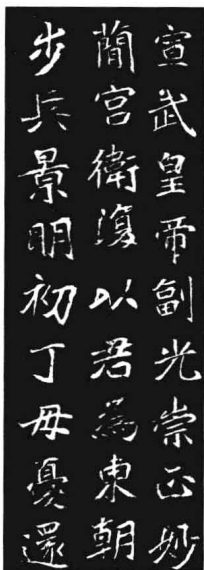 宣武皇帝副光崇正妙
簡宮衛復以君為東朝
步兵景明初丁母憂還